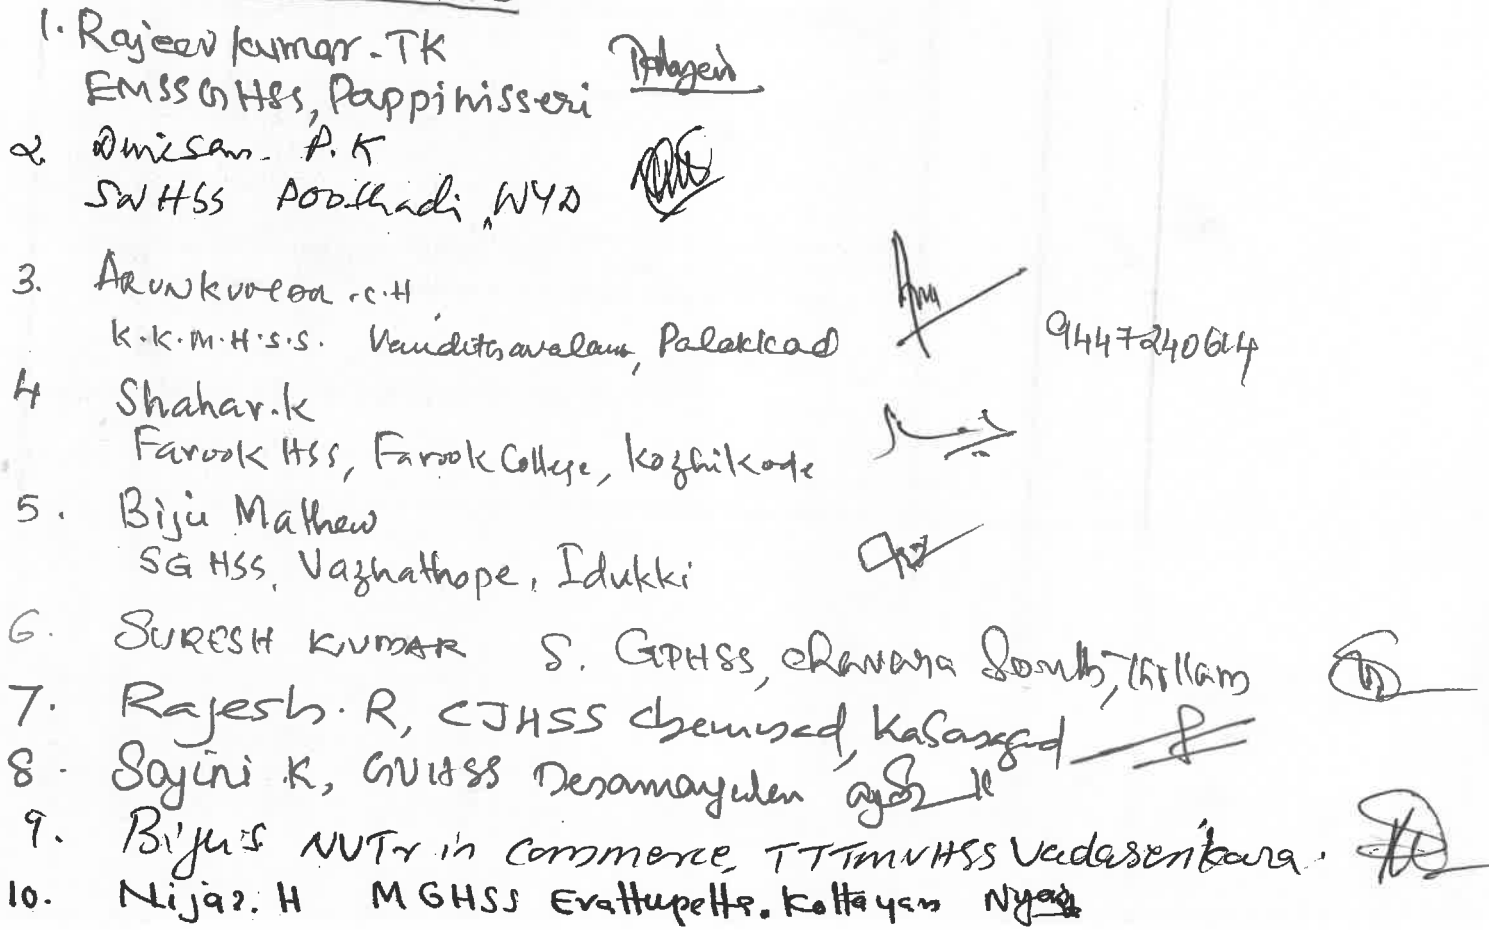 1. Rajeev kumar. TK
EMSSGHSS, Pappinisseri
2. P.K
SNHSS Poothadi, WYD
3. Arunkumar .C.H
K.K.M.H.S.S. Vandithavalam, Palakkad 9447240614
4 Shahar.k
Farook HSS, Farook College, Kozhikode
5. Biju Mathew
SG HSS, Vazhathope, Idukki
6. SURESH KUMAR S. GPHSS, Chavara South, Kollam
7. Rajesh. R, CJHSS Chemnad, Kasaragod
8. Sajini .K, GVHSS
9. Biju.S NVTr in Commerce, TTTMVHSS Vadasenikara.
10. Nijas. H MGHSS Erattupetta. Kottayam